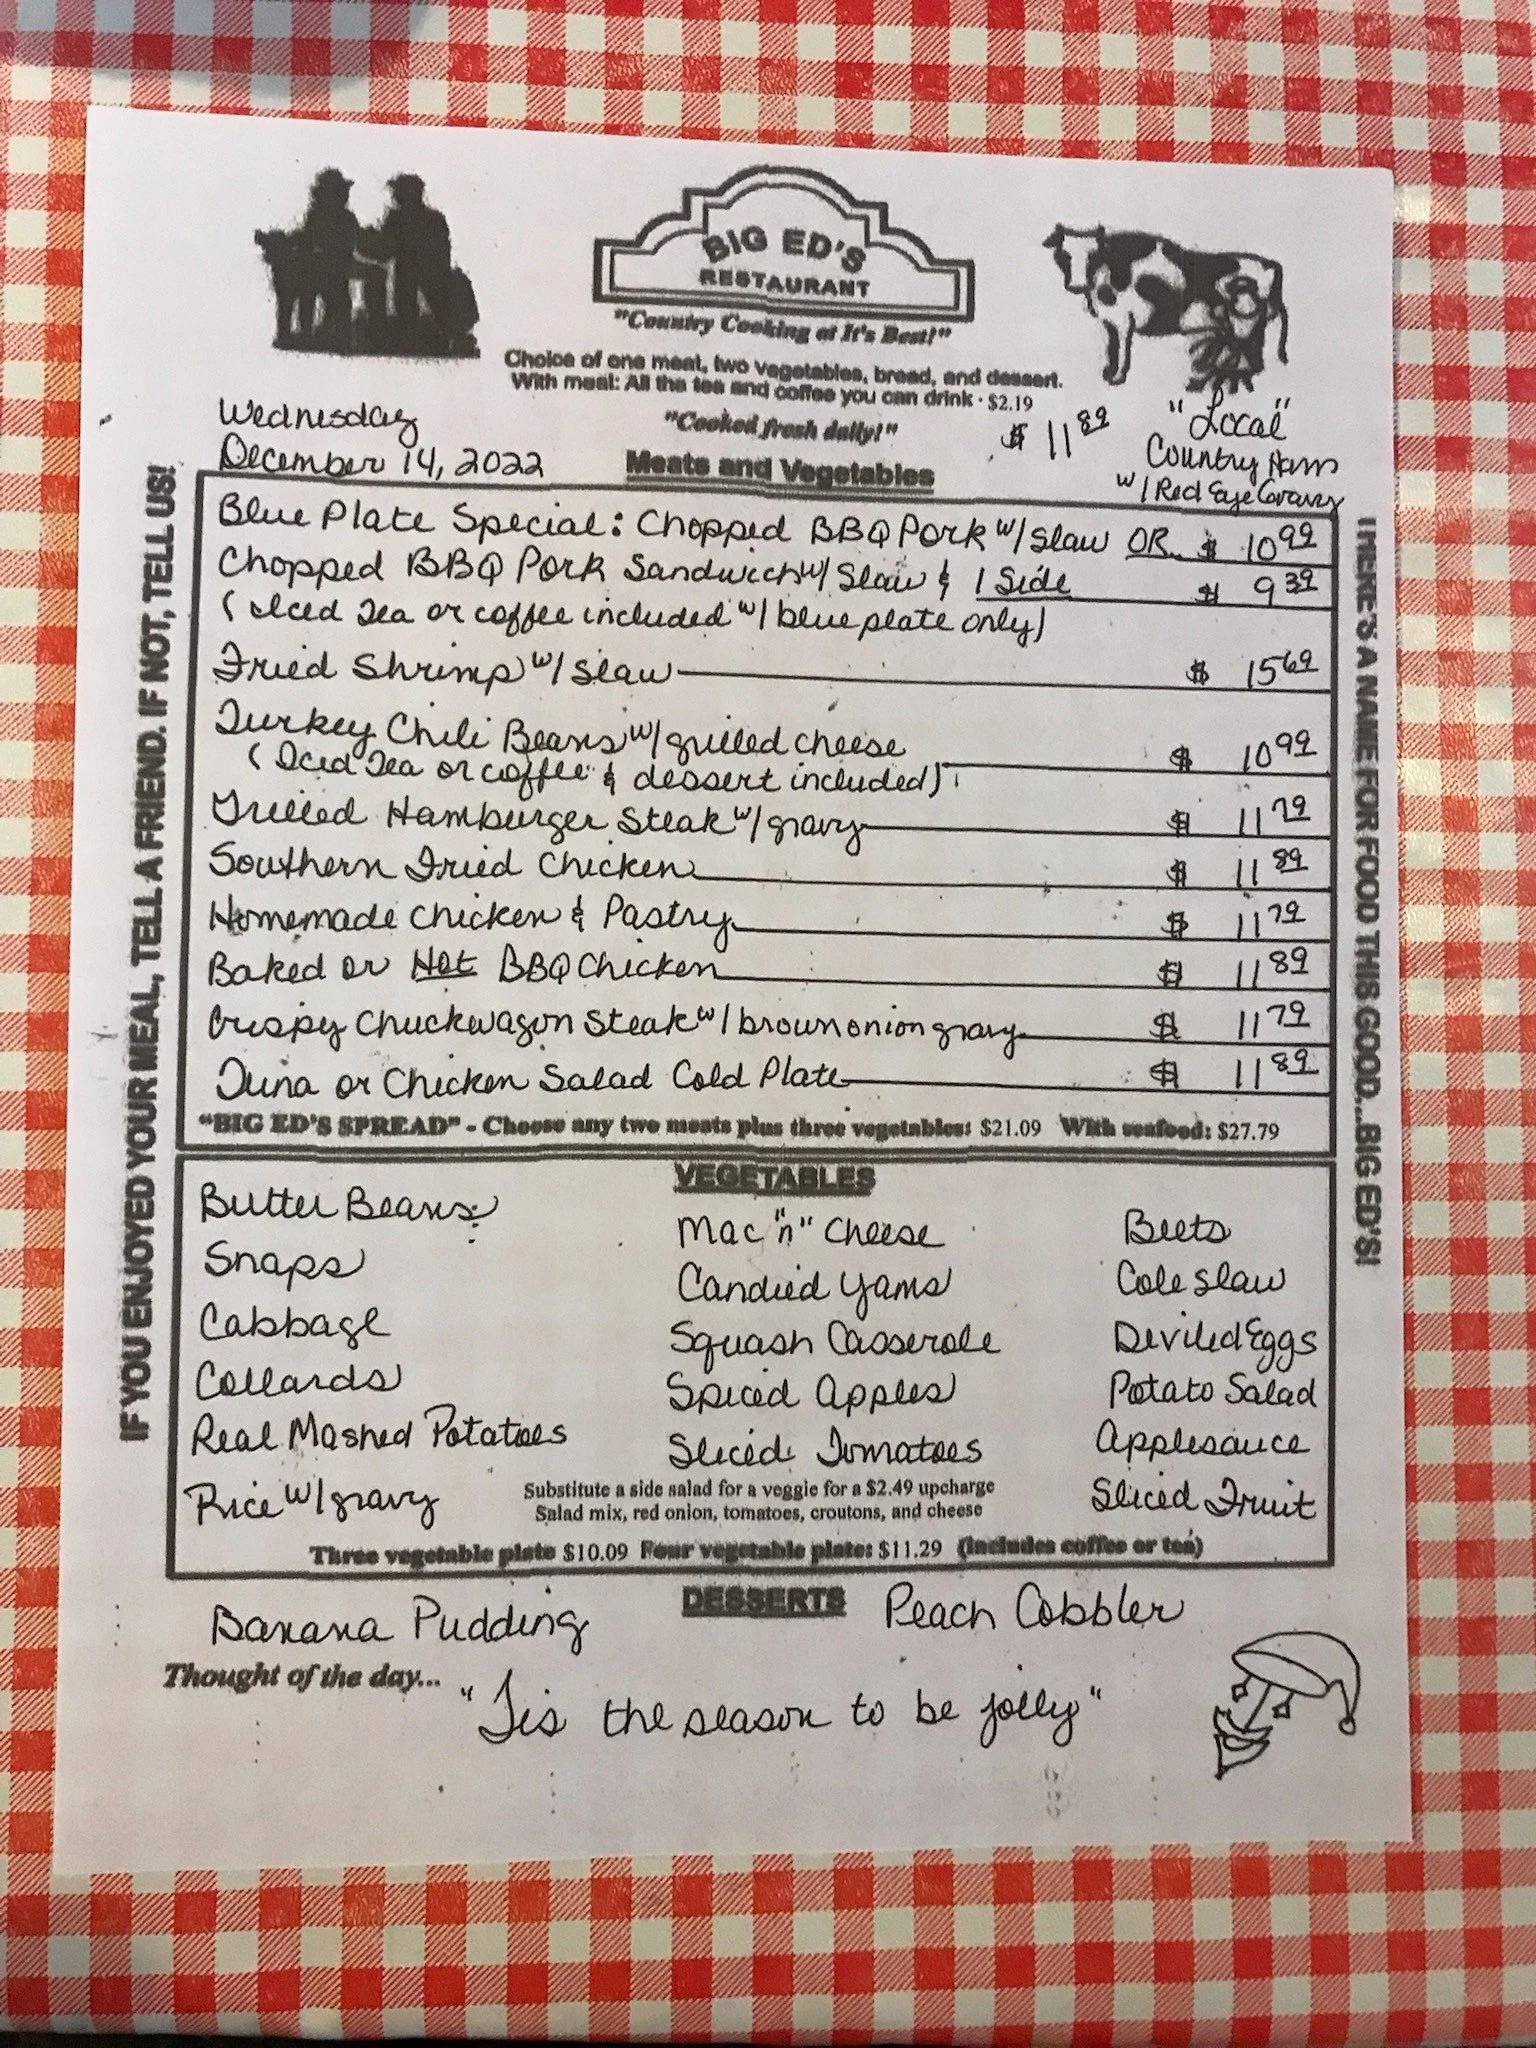 BIG ED'S
RESTAURANT
"Country Cooking at It's Best!"
Choice of one meat, two vegetables, bread, and dessert.
With meal: All the tea and coffee you can drink · $2.19
"Cooked fresh daily!"
Wednesday
December 14, 2022
$ 11 89
"Local"
Country Ham
w/ Red Eye Gravy
Meats and Vegetables
IF YOU ENJOYED YOUR MEAL, TELL A FRIEND. IF NOT, TELL US!
Blue Plate Special: Chopped BBQ Pork w/ Slaw OR $ 10 99
Chopped BBQ Pork Sandwich w/ Slaw & 1 Side $ 9 39
(Iced Tea or coffee included w/ blue plate only)
Fried Shrimp w/ Slaw $ 15 69
Turkey Chili Beans w/ grilled cheese $ 10 99
(Iced Tea or coffee & dessert included)
Grilled Hamburger Steak w/ gravy $ 11 79
Southern Fried Chicken $ 11 89
Homemade Chicken & Pastry $ 11 79
Baked or Hot BBQ Chicken $ 11 89
Crispy Chuckwagon Steak w/ brown onion gravy $ 11 79
Tuna or Chicken Salad Cold Plate $ 11 89
"BIG ED'S SPREAD" - Choose any two meats plus three vegetables: $21.09 With seafood: $27.79
THERE'S A NAME FOR FOOD THIS GOOD...BIG ED'S!
VEGETABLES
Butter Beans
Snaps
Cabbage
Collards
Real Mashed Potatoes
Rice w/ gravy
Mac "n" Cheese
Candied Yams
Squash Casserole
Spiced Apples
Sliced Tomatoes
Beets
Cole Slaw
Deviled Eggs
Potato Salad
Applesauce
Sliced Fruit
Substitute a side salad for a veggie for a $2.49 upcharge
Salad mix, red onion, tomatoes, croutons, and cheese
Three vegetable plate $10.09 Four vegetable plate: $11.29 (Includes coffee or tea)
DESSERTS
Banana Pudding
Peach Cobbler
Thought of the day...
"Tis the season to be jolly"